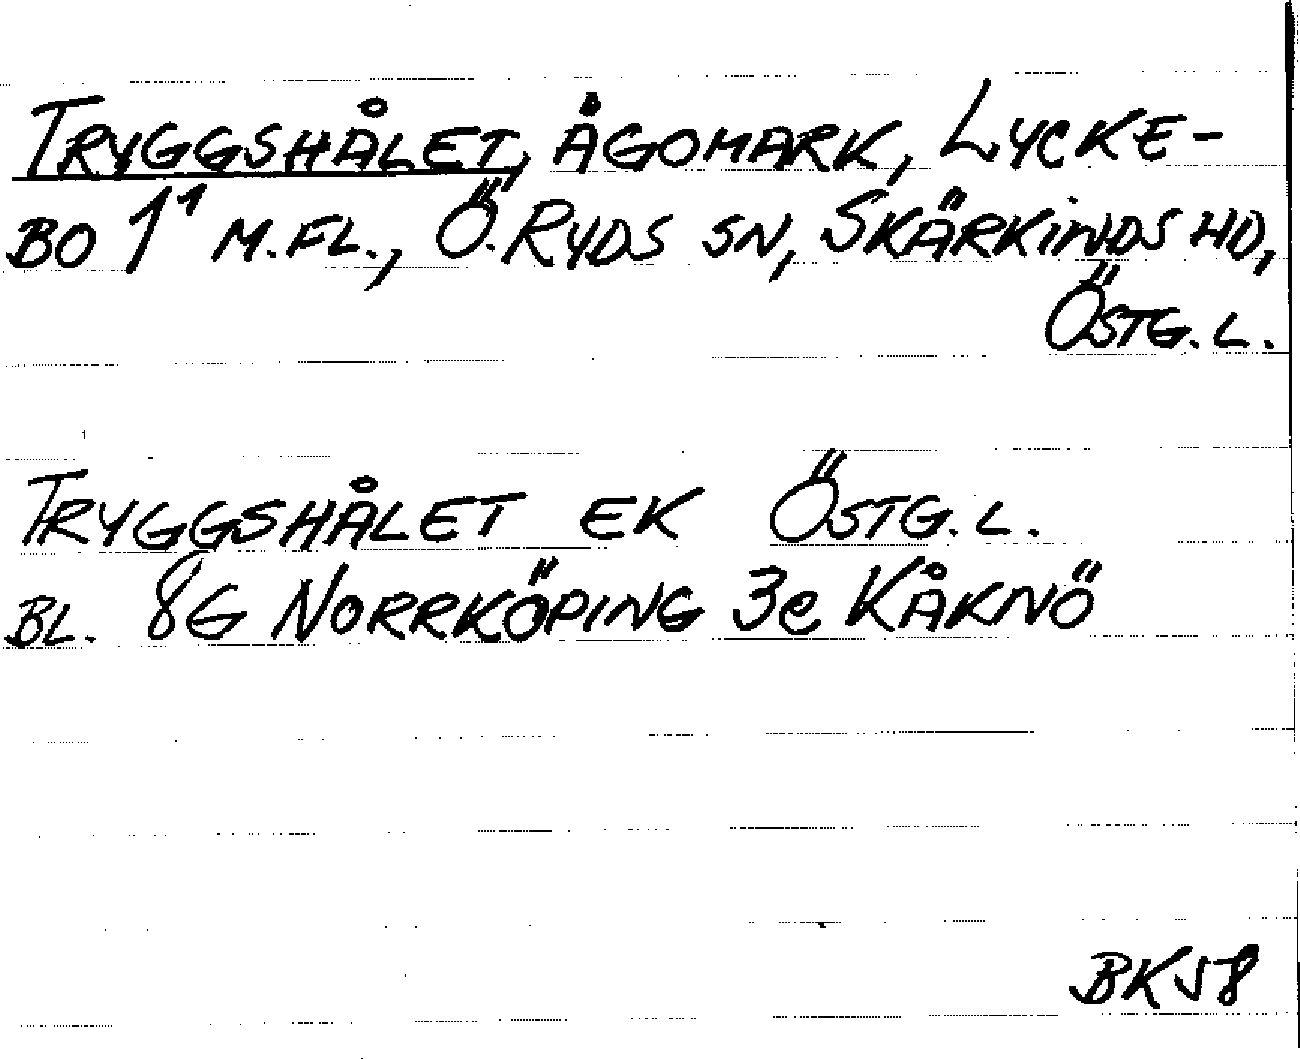 TRYGGSHÅLET, ÅGOMARK, LYCKE-
BO 1¹ M.FL., Ö. RYDS SN, SKÄRKINDS HD,
ÖSTG. L.
TRYGGSHÅLET EK ÖSTG. L.
BL. 8G NORRKÖPING 3e KÅKNÖ
BK58